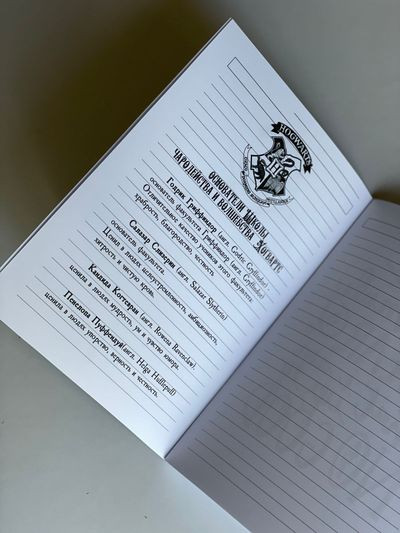 HOGWARTS
ОСНОВАТЕЛИ ШКОЛЫ
ЧАРОДЕЙСТВА И ВОЛШЕБСТВА ХОГВАРТС
Годрик Гриффиндор (англ. Godric Gryffindor)
основатель факультета Гриффиндор (англ. Gryffindor)
Отличительные качества учеников этого факультета
храбрость, благородство, честность
Салазар Слизерин (англ. Salazar Slytherin)
основатель факультета.
Ценил в людях целеустремленность, амбициозность,
хитрость и чистую кровь.
Кандида Когтевран (англ. Rowena Ravenclaw)
ценила в людях мудрость, ум и чувство юмора.
Пенелопа Пуффендуй(англ. Helga Hufflepuff)
ценила в людях упорство, верность и честность.